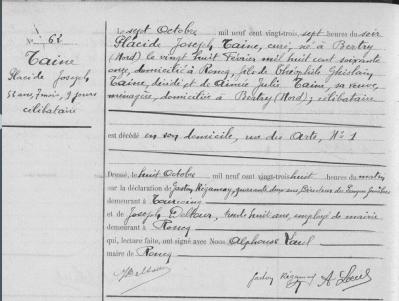 N° 62
Taine
Placide Joseph
52 ans, 7 mois, 9 jours
célibataire
Le sept Octobre mil neuf cent vingt-trois, sept heures du soir
Placide Joseph Taine, curé, né à Bertry
(Nord) le vingt huit Février mil huit cent soixante
onze, domicilié à Roncq, fils de Théophile Ghislain
Taine, décédé et de Aimée Julie Taine, sa veuve,
ménagère, domiciliée à Bertry (Nord); célibataire
est décédé en son domicile, rue des Arts, N° 1
Dressé, le huit Octobre mil neuf cent vingt-trois huit heures du matin
sur la déclaration de Gaston quarante deux ans, Directeur de Pompes funèbres
demeurant à Tourcoing
et de Joseph Deltour, trente huit ans, employé de mairie
demeurant à Roncq
qui, lecture faite, ont signé avec Nous Alphonse
maire de Roncq